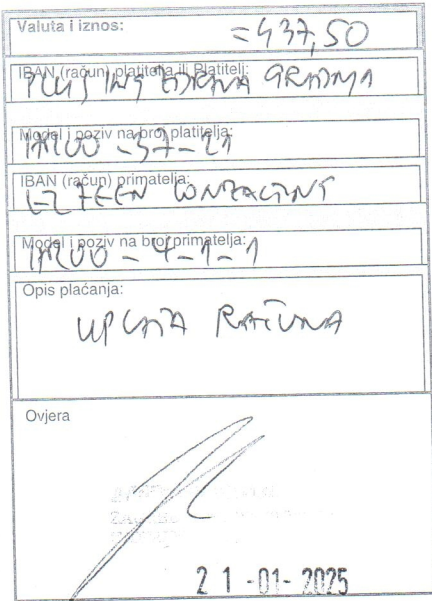 Valuta i iznos: =437,50
IBAN (račun) platitelja ili Platitelj:
PLUS GRADNJA
Model i poziv na broj platitelja:
HR00-37-21
IBAN (račun) primatelja:
Model i poziv na broj primatelja:
HR00-4-1-1
Opis plaćanja:
UPLATA RAČUNA
Ovjera
21-01-2025